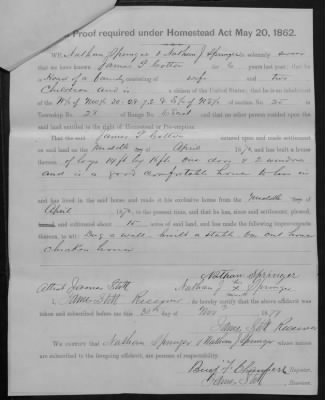 Proof required under Homestead Act May 20, 1862.
WE, Nathan Springer & Nathan J Springer solemnly swear
that we have known James P Cotter for 6 years last past; that he
Head of a Family consisting of wife and two
Children and is a citizen of the United States; that he is an inhabitant
of the section No. 25
Township No. 28 of Range No. and that no other person resided upon the
said land entitled to the right of Homestead or Pre-emption.
That the said James P Cotter entered upon and made settlement
on said land on the day of April, 187 and has built a house
thereon of logs 14 ft by 14 ft one door & 2 windows
and is a good comfortable house to live in
and has lived in the said house and made it his exclusive home from the day of
April 187 to the present time, and that he has, since said settlement, plowed,
fenced, and cultivated about 15 acres of said land, and has made the following improvements
thereon, to wit: Dug a well built a stable out house
chicken house
Nathan Springer
Attest James Stott Nathan J his x mark Springer
I, James Stott Receiver do hereby certify that the above affidavit was
taken and subscribed before me this 30th day of Nov 1877
James Stott Receiver
WE CERTIFY that Nathan Springer & Nathan J Springer whose names
are subscribed to the foregoing affidavit, are persons of respectability.
Register.
James Stott, Receiver.